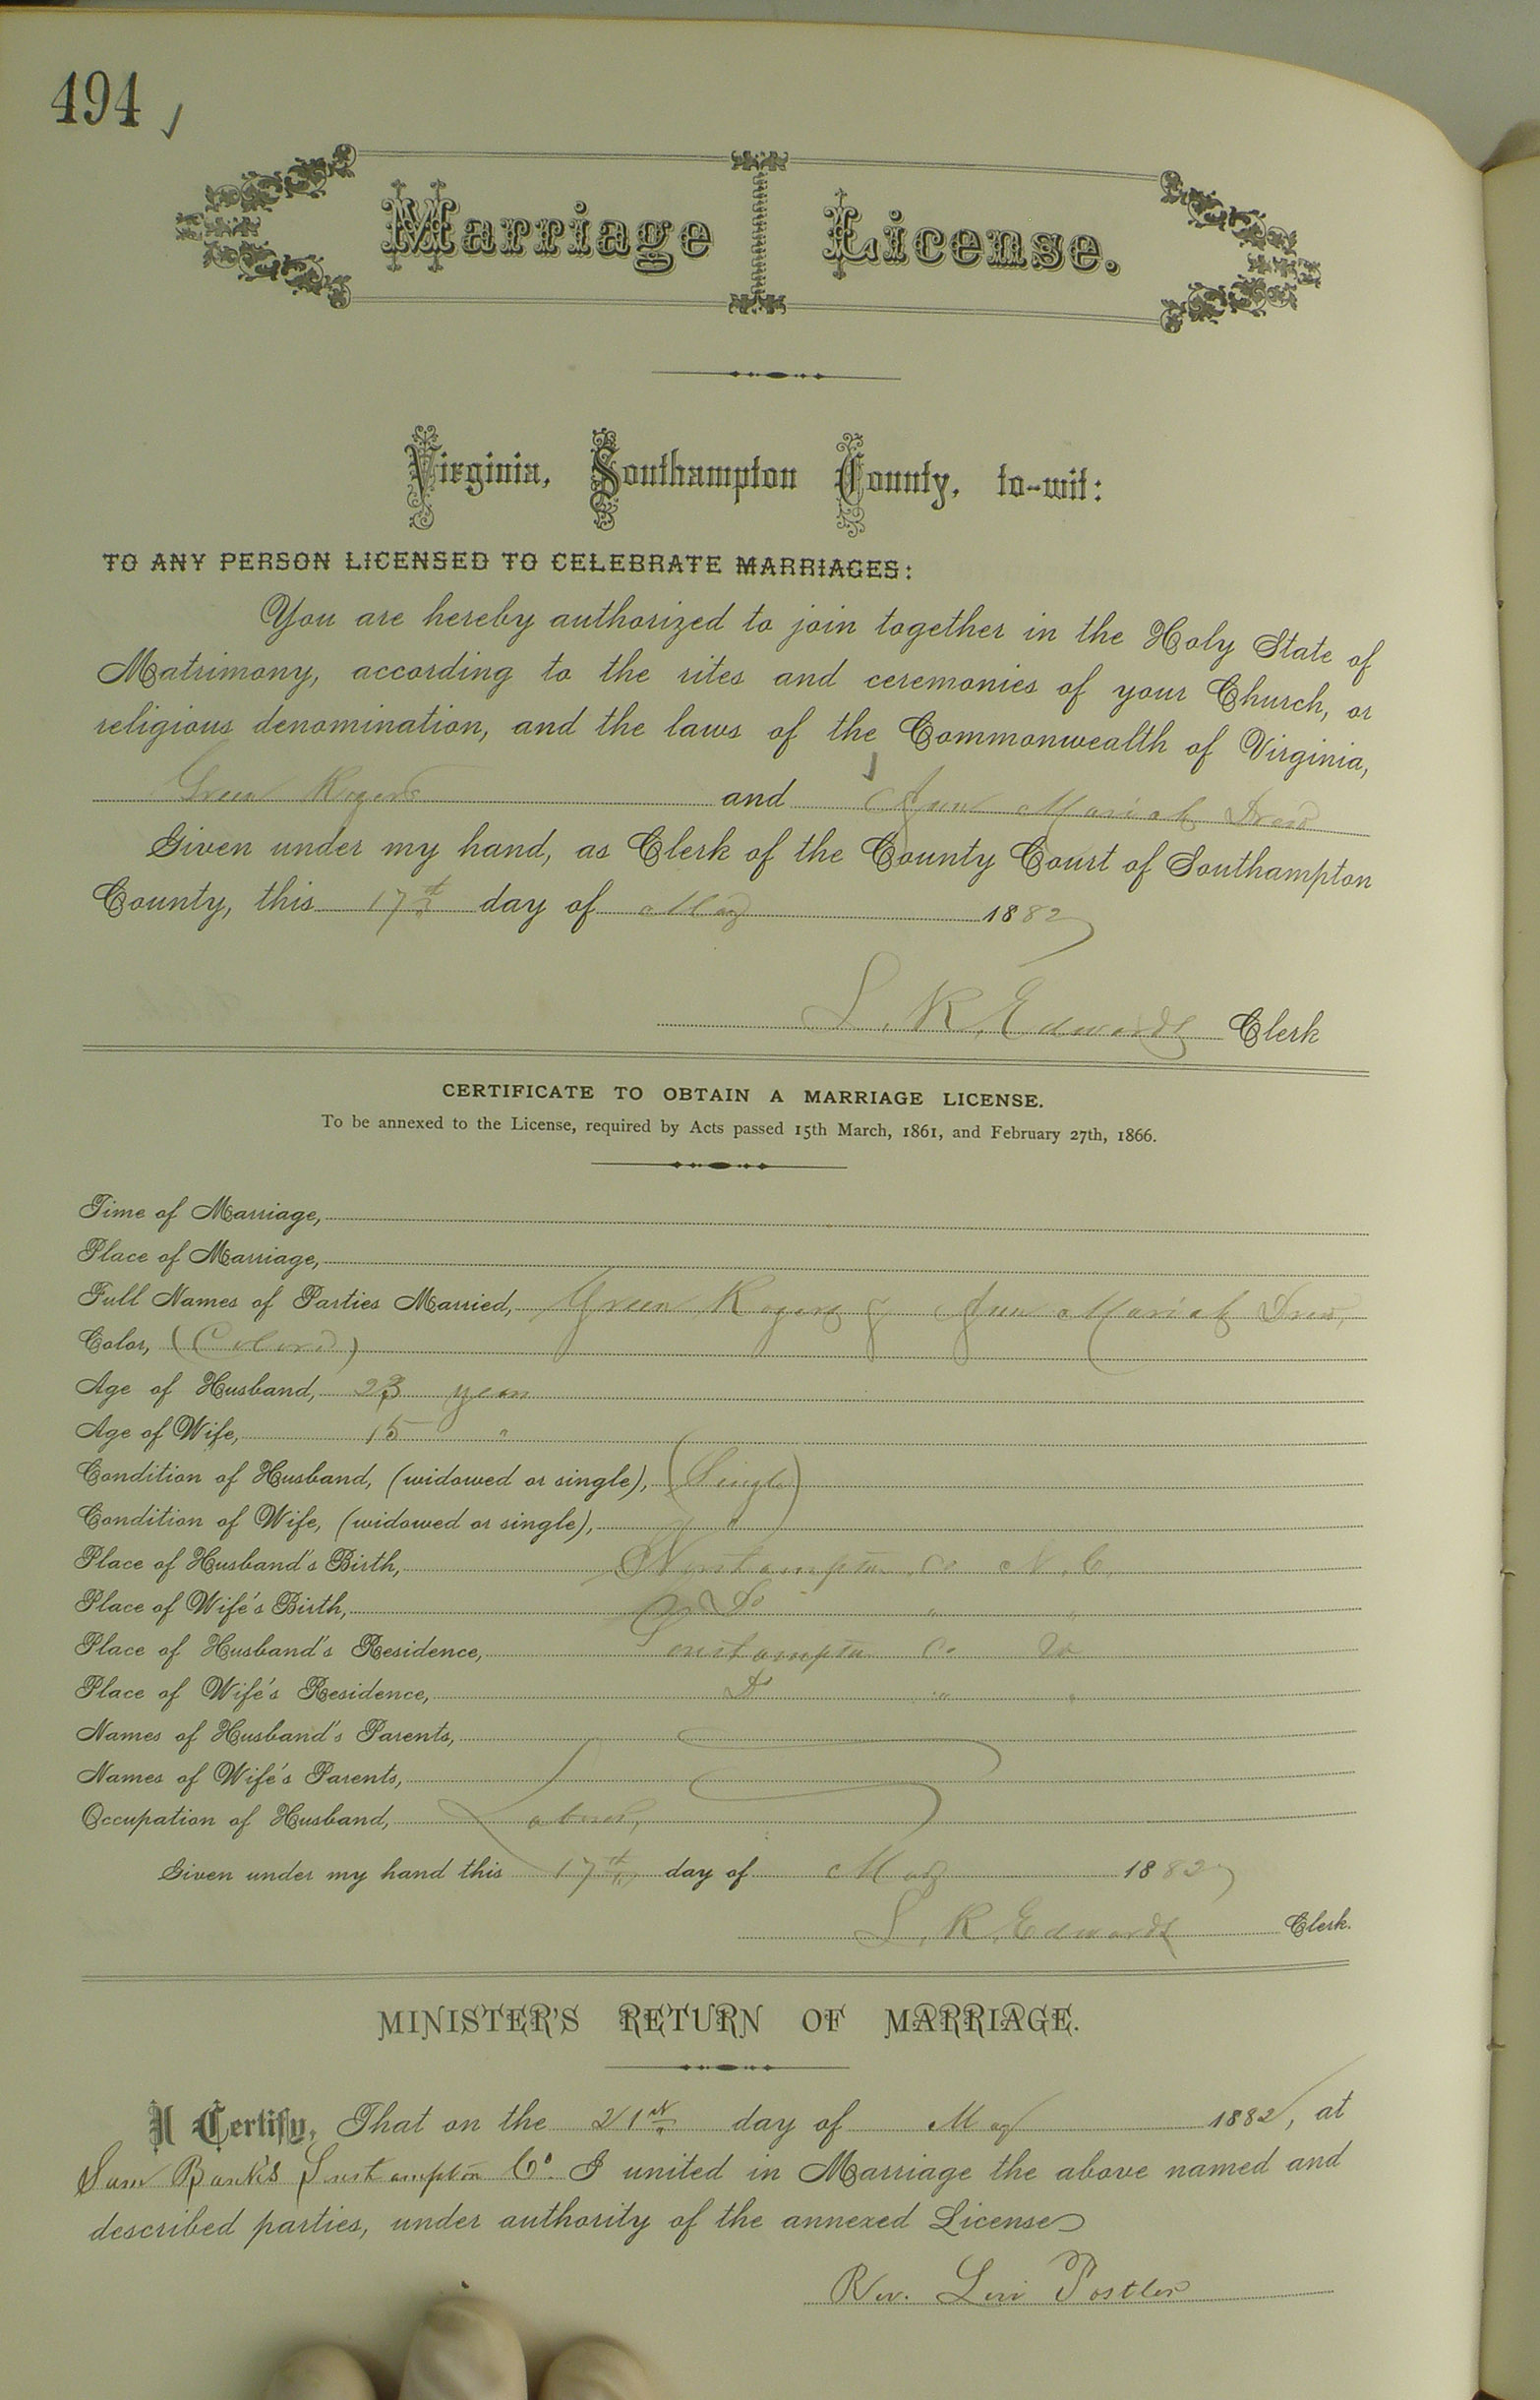 494
Marriage License.
Virginia, Southampton County, to-wit:
TO ANY PERSON LICENSED TO CELEBRATE MARRIAGES:
You are hereby authorized to join together in the Holy State of
Matrimony, according to the rites and ceremonies of your Church, or
religious denomination, and the laws of the Commonwealth of Virginia,
Green Rogers and Ann Mariah Drew
Given under my hand, as Clerk of the County Court of Southampton
County, this 17th day of May 1882
L. R. Edwards Clerk
CERTIFICATE TO OBTAIN A MARRIAGE LICENSE.
To be annexed to the License, required by Acts passed 15th March, 1861, and February 27th, 1866.
Time of Marriage,
Place of Marriage,
Full Names of Parties Married, Green Rogers & Ann Mariah Drew,
Color, (Colored)
Age of Husband, 23 years
Age of Wife, 15 "
Condition of Husband, (widowed or single), (Single)
Condition of Wife, (widowed or single), "
Place of Husband's Birth, Northampton Co N. C.
Place of Wife's Birth, Do " "
Place of Husband's Residence, Southampton Co Va
Place of Wife's Residence, Do " "
Names of Husband's Parents,
Names of Wife's Parents,
Occupation of Husband, Laborer,
Given under my hand this 17th day of May 1882
L. R. Edwards Clerk.
MINISTER'S RETURN OF MARRIAGE.
I Certify, That on the 21st day of May 1882, at
Sam Bank's Southampton Co. I united in Marriage the above named and
described parties, under authority of the annexed License
Rev. Levi